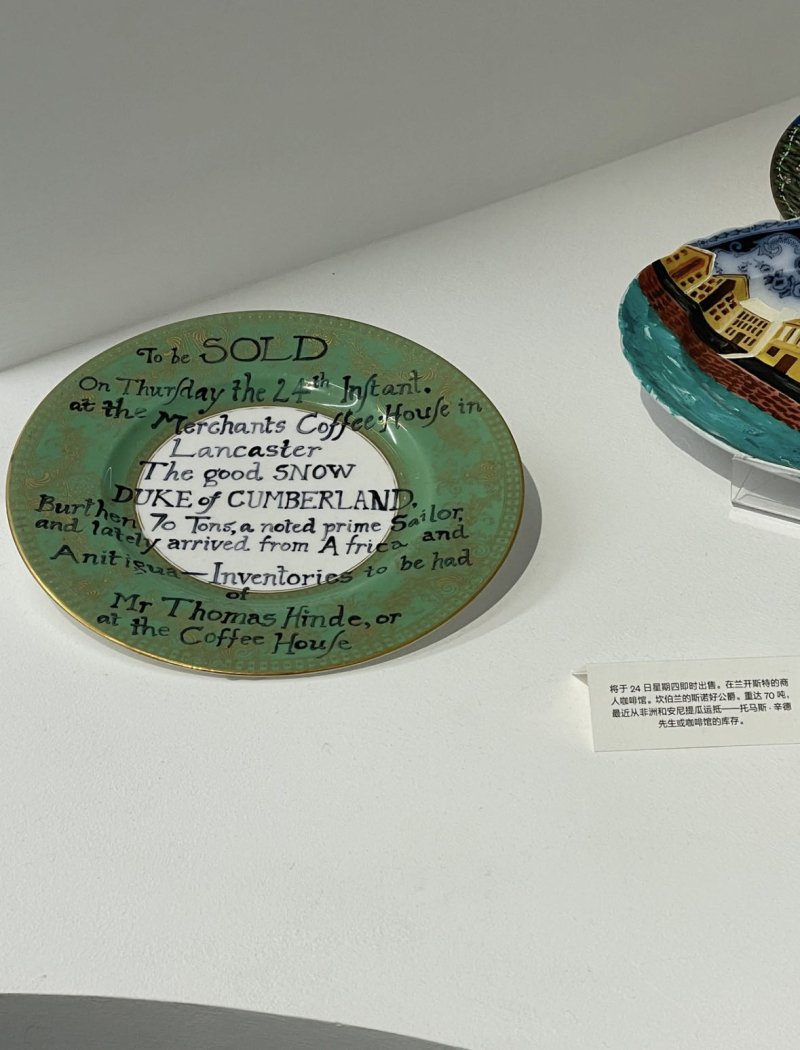 To be SOLD
On Thurſday the 24th Inſtant.
at the Merchants Coffee-Houſe in
Lancaster
The good SNOW
DUKE of CUMBERLAND.
Burthen 70 Tons, a noted prime Sailor,
and lately arrived from Africa and
Anitigua—Inventories to be had
of
Mr Thomas Hinde, or
at the Coffee Houſe
将于 24 日星期四即时出售。在兰开斯特的商
人咖啡馆。坎伯兰的斯诺好公爵。重达 70 吨,
最近从非洲和安尼提瓜运抵——托马斯·辛德
先生或咖啡馆的库存。